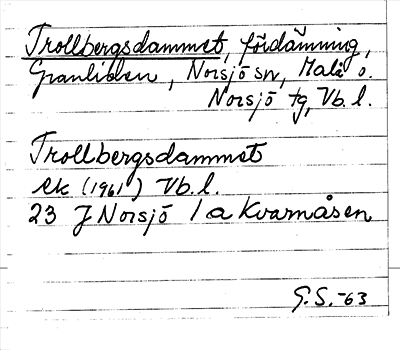 Trollbergsdammet, fördämning,
Granliden, Norsjö sn, Malå o.
Norsjö tg, Vb. l.
Trollbergsdammet
ek (1961) Vb. l.
23 J Norsjö 1 a Kvarnåsen
G.S. -63